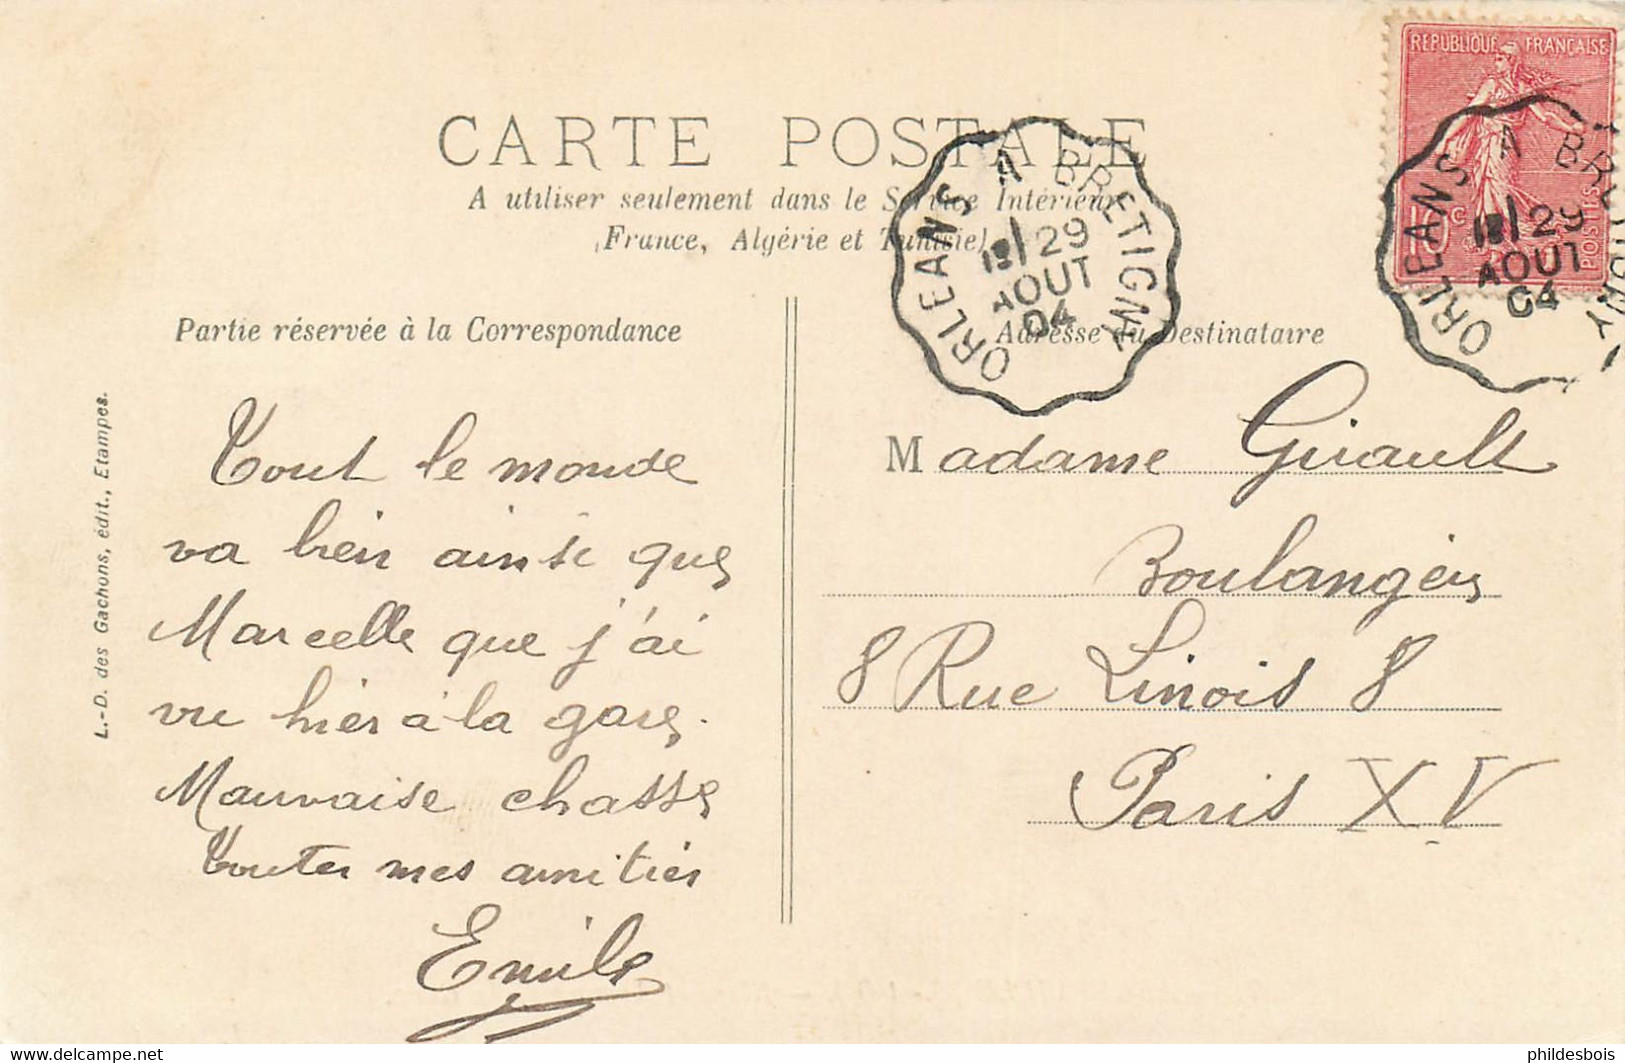 CARTE POSTALE
A utiliser seulement dans le Service Intérieur
(France, Algérie et Tunisie)
RÉPUBLIQUE FRANÇAISE
10c
POSTES
ORLEANS A BRETIGNY
29
AOUT
04
ORLEANS A BRETIGNY
29
AOUT
04
Partie réservée à la Correspondance
Adresse du Destinataire
L.-D. des Gachons, édit., Etampes.
Tout le monde
va bien ainsi que
Marcelle que j'ai
vu hier à la gare.
Mauvaise chasse
Toutes mes amitiés
Emile
Madame Girault
Boulangers
8 Rue Linois 8
Paris XV
www.delcampe.net
phildesbois